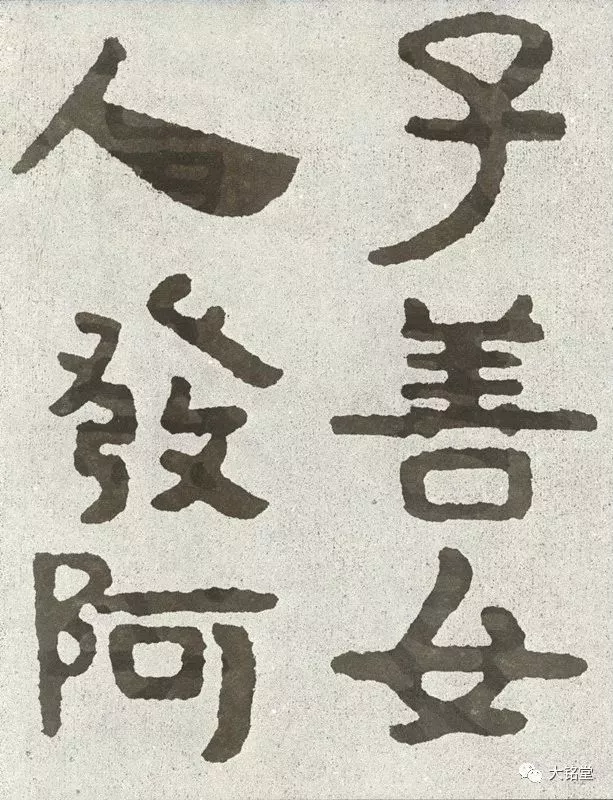 子善女
人發阿
大铭堂